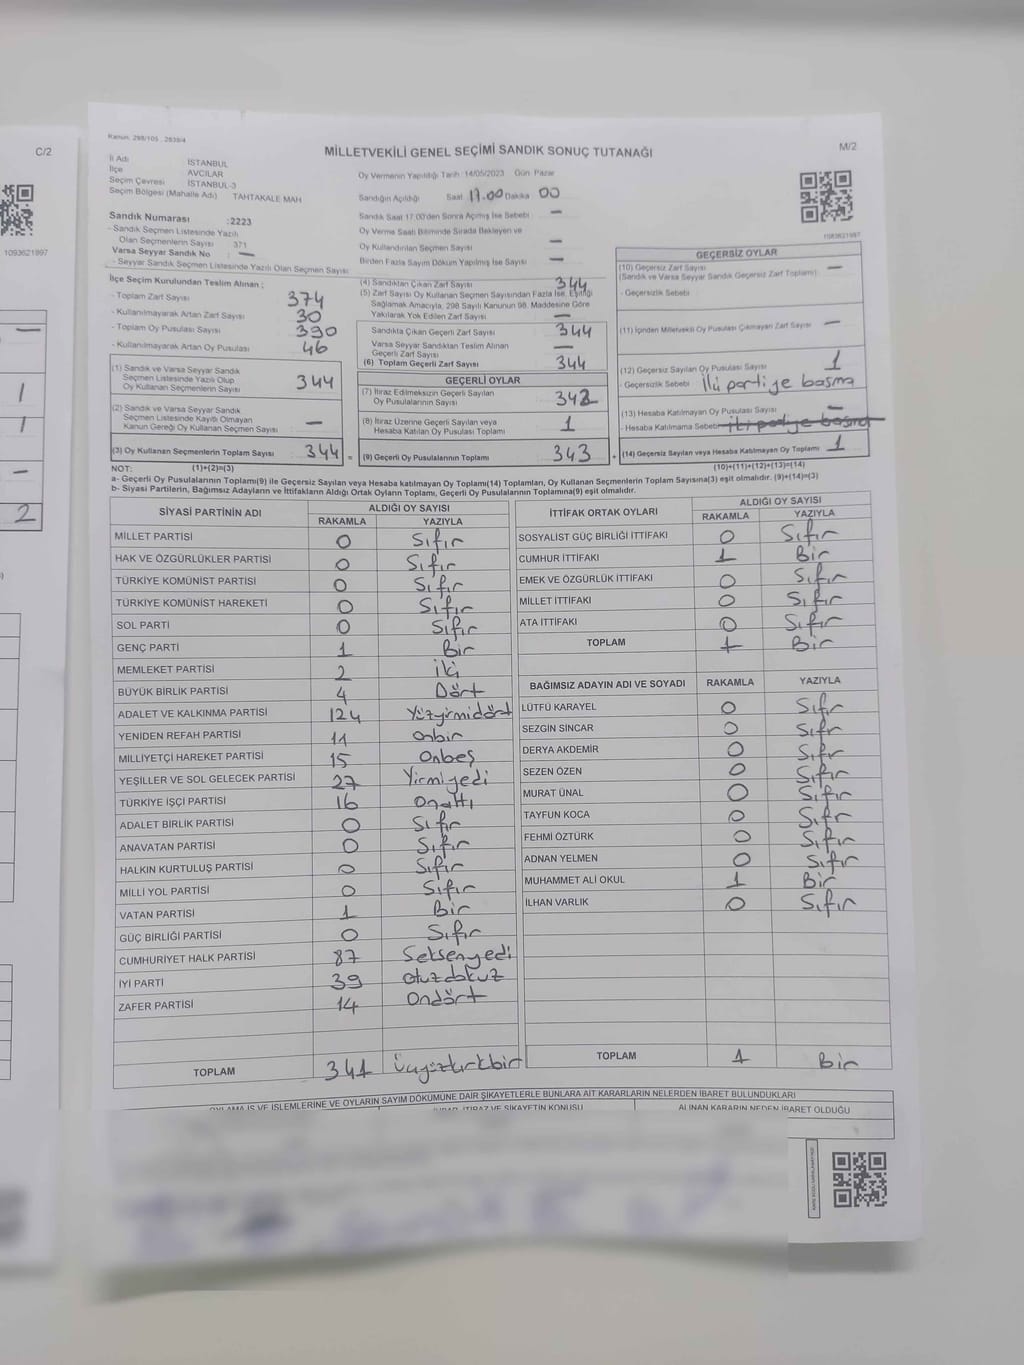 C/2
1093621997
1
1
2
Kanun: 298/105 , 2839/4
MİLLETVEKİLİ GENEL SEÇİMİ SANDIK SONUÇ TUTANAĞI
M/2
İl Adı İSTANBUL
İlçe AVCILAR
Seçim Çevresi İSTANBUL-3
Seçim Bölgesi (Mahalle Adı) TAHTAKALE MAH
Oy Vermenin Yapıldığı Tarih :14/05/2023 Gün Pazar
Sandığın Açıldığı Saat 17.00 Dakika 00
Sandık Saat 17:00'den Sonra Açılmış İse Sebebi —
Oy Verme Saati Bitiminde Sırada Bekleyen ve
Oy Kullandırılan Seçmen Sayısı —
Birden Fazla Sayım Döküm Yapılmış İse Sayısı —
1093621997
Sandık Numarası :2223
- Sandık Seçmen Listesinde Yazılı
Olan Seçmenlerin Sayısı 371
Varsa Seyyar Sandık No : —
- Seyyar Sandık Seçmen Listesinde Yazılı Olan Seçmen Sayısı
İlçe Seçim Kurulundan Teslim Alınan :
- Toplam Zarf Sayısı 374
- Kullanılmayarak Artan Zarf Sayısı 30
- Toplam Oy Pusulası Sayısı 390
- Kullanılmayarak Artan Oy Pusulası 46
(1) Sandık ve Varsa Seyyar Sandık
Seçmen Listesinde Yazılı Olup
Oy Kullanan Seçmenlerin Sayısı 344
(2) Sandık ve Varsa Seyyar Sandık
Seçmen Listesinde Kayıtlı Olmayan
Kanun Gereği Oy Kullanan Seçmen Sayısı —
(3) Oy Kullanan Seçmenlerin Toplam Sayısı 344 =
(4) Sandıktan Çıkan Zarf Sayısı 344
(5) Zarf Sayısı Oy Kullanan Seçmen Sayısından Fazla İse, Eşitliği
Sağlamak Amacıyla, 298 Sayılı Kanunun 98. Maddesine Göre
Yakılarak Yok Edilen Zarf Sayısı —
Sandıkta Çıkan Geçerli Zarf Sayısı 344
Varsa Seyyar Sandıktan Teslim Alınan
Geçerli Zarf Sayısı —
(6) Toplam Geçerli Zarf Sayısı 344
GEÇERLİ OYLAR
(7) İtiraz Edilmeksizin Geçerli Sayılan
Oy Pusulalarının Sayısı 342
(8) İtiraz Üzerine Geçerli Sayılan veya
Hesaba Katılan Oy Pusulası Toplamı 1
(9) Geçerli Oy Pusulalarının Toplamı 343 +
GEÇERSİZ OYLAR
(10) Geçersiz Zarf Sayısı —
(Sandık ve Varsa Seyyar Sandık Geçersiz Zarf Toplamı)
- Geçersizlik Sebebi
(11) İçinden Milletvekili Oy Pusulası Çıkmayan Zarf Sayısı —
(12) Geçersiz Sayılan Oy Pusulası Sayısı 1
- Geçersizlik Sebebi İki partiye basma
(13) Hesaba Katılmayan Oy Pusulası Sayısı —
- Hesaba Katılmama Sebebi İki partiye basma
(14) Geçersiz Sayılan veya Hesaba Katılmayan Oy Toplamı 1
NOT: (1)+(2)=(3) (10)+(11)+(12)+(13)=(14)
a- Geçerli Oy Pusulalarının Toplamı(9) ile Geçersiz Sayılan veya Hesaba katılmayan Oy Toplamı(14) Toplamları, Oy Kullanan Seçmenlerin Toplam Sayısına(3) eşit olmalıdır. (9)+(14)=(3)
b- Siyasi Partilerin, Bağımsız Adayların ve İttifakların Aldığı Ortak Oyların Toplamı, Geçerli Oy Pusulalarının Toplamına(9) eşit olmalıdır.
SİYASİ PARTİNİN ADI ALDIĞI OY SAYISI
RAKAMLA YAZIYLA
MİLLET PARTİSİ 0 Sıfır
HAK VE ÖZGÜRLÜKLER PARTİSİ 0 Sıfır
TÜRKİYE KOMÜNİST PARTİSİ 0 Sıfır
TÜRKİYE KOMÜNİST HAREKETİ 0 Sıfır
SOL PARTİ 0 Sıfır
GENÇ PARTİ 1 Bir
MEMLEKET PARTİSİ 2 İki
BÜYÜK BİRLİK PARTİSİ 4 Dört
ADALET VE KALKINMA PARTİSİ 124 Yüzyirmidört
YENİDEN REFAH PARTİSİ 11 Onbir
MİLLİYETÇİ HAREKET PARTİSİ 15 Onbeş
YEŞİLLER VE SOL GELECEK PARTİSİ 27 Yirmiyedi
TÜRKİYE İŞÇİ PARTİSİ 16 Onaltı
ADALET BİRLİK PARTİSİ 0 Sıfır
ANAVATAN PARTİSİ 0 Sıfır
HALKIN KURTULUŞ PARTİSİ 0 Sıfır
MİLLİ YOL PARTİSİ 0 Sıfır
VATAN PARTİSİ 1 Bir
GÜÇ BİRLİĞİ PARTİSİ 0 Sıfır
CUMHURİYET HALK PARTİSİ 87 Seksenyedi
İYİ PARTİ 39 Otuzdokuz
ZAFER PARTİSİ 14 Ondört
TOPLAM 341 Üçyüzkırkbir
İTTİFAK ORTAK OYLARI ALDIĞI OY SAYISI
RAKAMLA YAZIYLA
SOSYALİST GÜÇ BİRLİĞİ İTTİFAKI 0 Sıfır
CUMHUR İTTİFAKI 1 Bir
EMEK VE ÖZGÜRLÜK İTTİFAKI 0 Sıfır
MİLLET İTTİFAKI 0 Sıfır
ATA İTTİFAKI 0 Sıfır
TOPLAM 1 Bir
BAĞIMSIZ ADAYIN ADI VE SOYADI RAKAMLA YAZIYLA
LÜTFÜ KARAYEL 0 Sıfır
SEZGİN SİNCAR 0 Sıfır
DERYA AKDEMİR 0 Sıfır
SEZEN ÖZEN 0 Sıfır
MURAT ÜNAL 0 Sıfır
TAYFUN KOCA 0 Sıfır
FEHMİ ÖZTÜRK 0 Sıfır
ADNAN YELMEN 0 Sıfır
MUHAMMET ALİ OKUL 1 Bir
İLHAN VARLIK 0 Sıfır
TOPLAM 1 Bir
OYLAMA İŞ VE İŞLEMLERİNE VE OYLARIN SAYIM DÖKÜMÜNE DAİR ŞİKAYETLERLE BUNLARA AİT KARARLARIN NELERDEN İBARET BULUNDUKLARI
İTİRAZ VE ŞİKAYETİN KONUSU ALINAN KARARIN NEDEN İBARET OLDUĞU